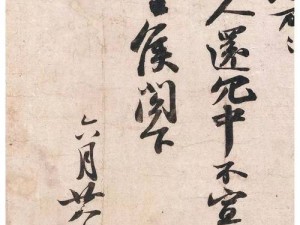 人還冗中不宣
侯閤下
六月廿